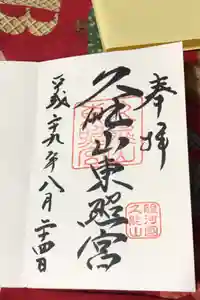 奉拝
久能山東照宮
平成二十九年八月二十四日
駿河國
久能山